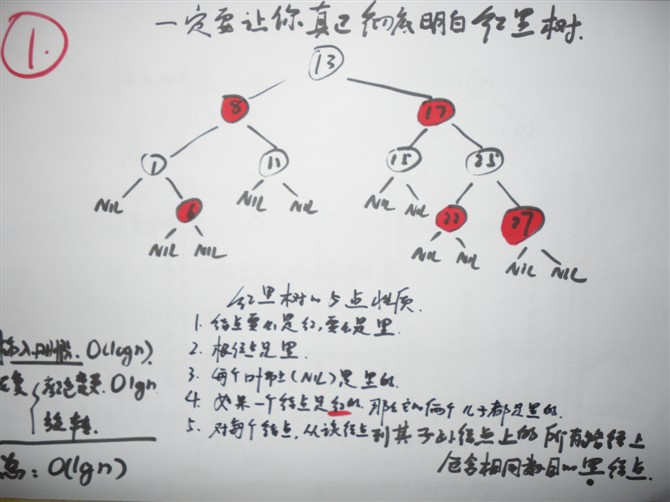 1.
一定要让你真正彻底明白红黑树.
13
8 17
1 11 15 25
NIL 6 NIL NIL NIL NIL 22 27
NIL NIL NIL NIL NIL NIL
红黑树的5点性质.
1. 结点要么是红,要么是黑.
2. 根结点是黑.
3. 每个叶节点(NIL)是黑的.
4. 如果一个结点是红的,那么它的俩个儿子都是黑的.
5. 对每个结点,从该结点到其子孙结点上的所有路径上
包含相同数目的黑结点.
插入 O(lgn)
修复 颜色变更. O lgn
旋转.
总: O(lgn)